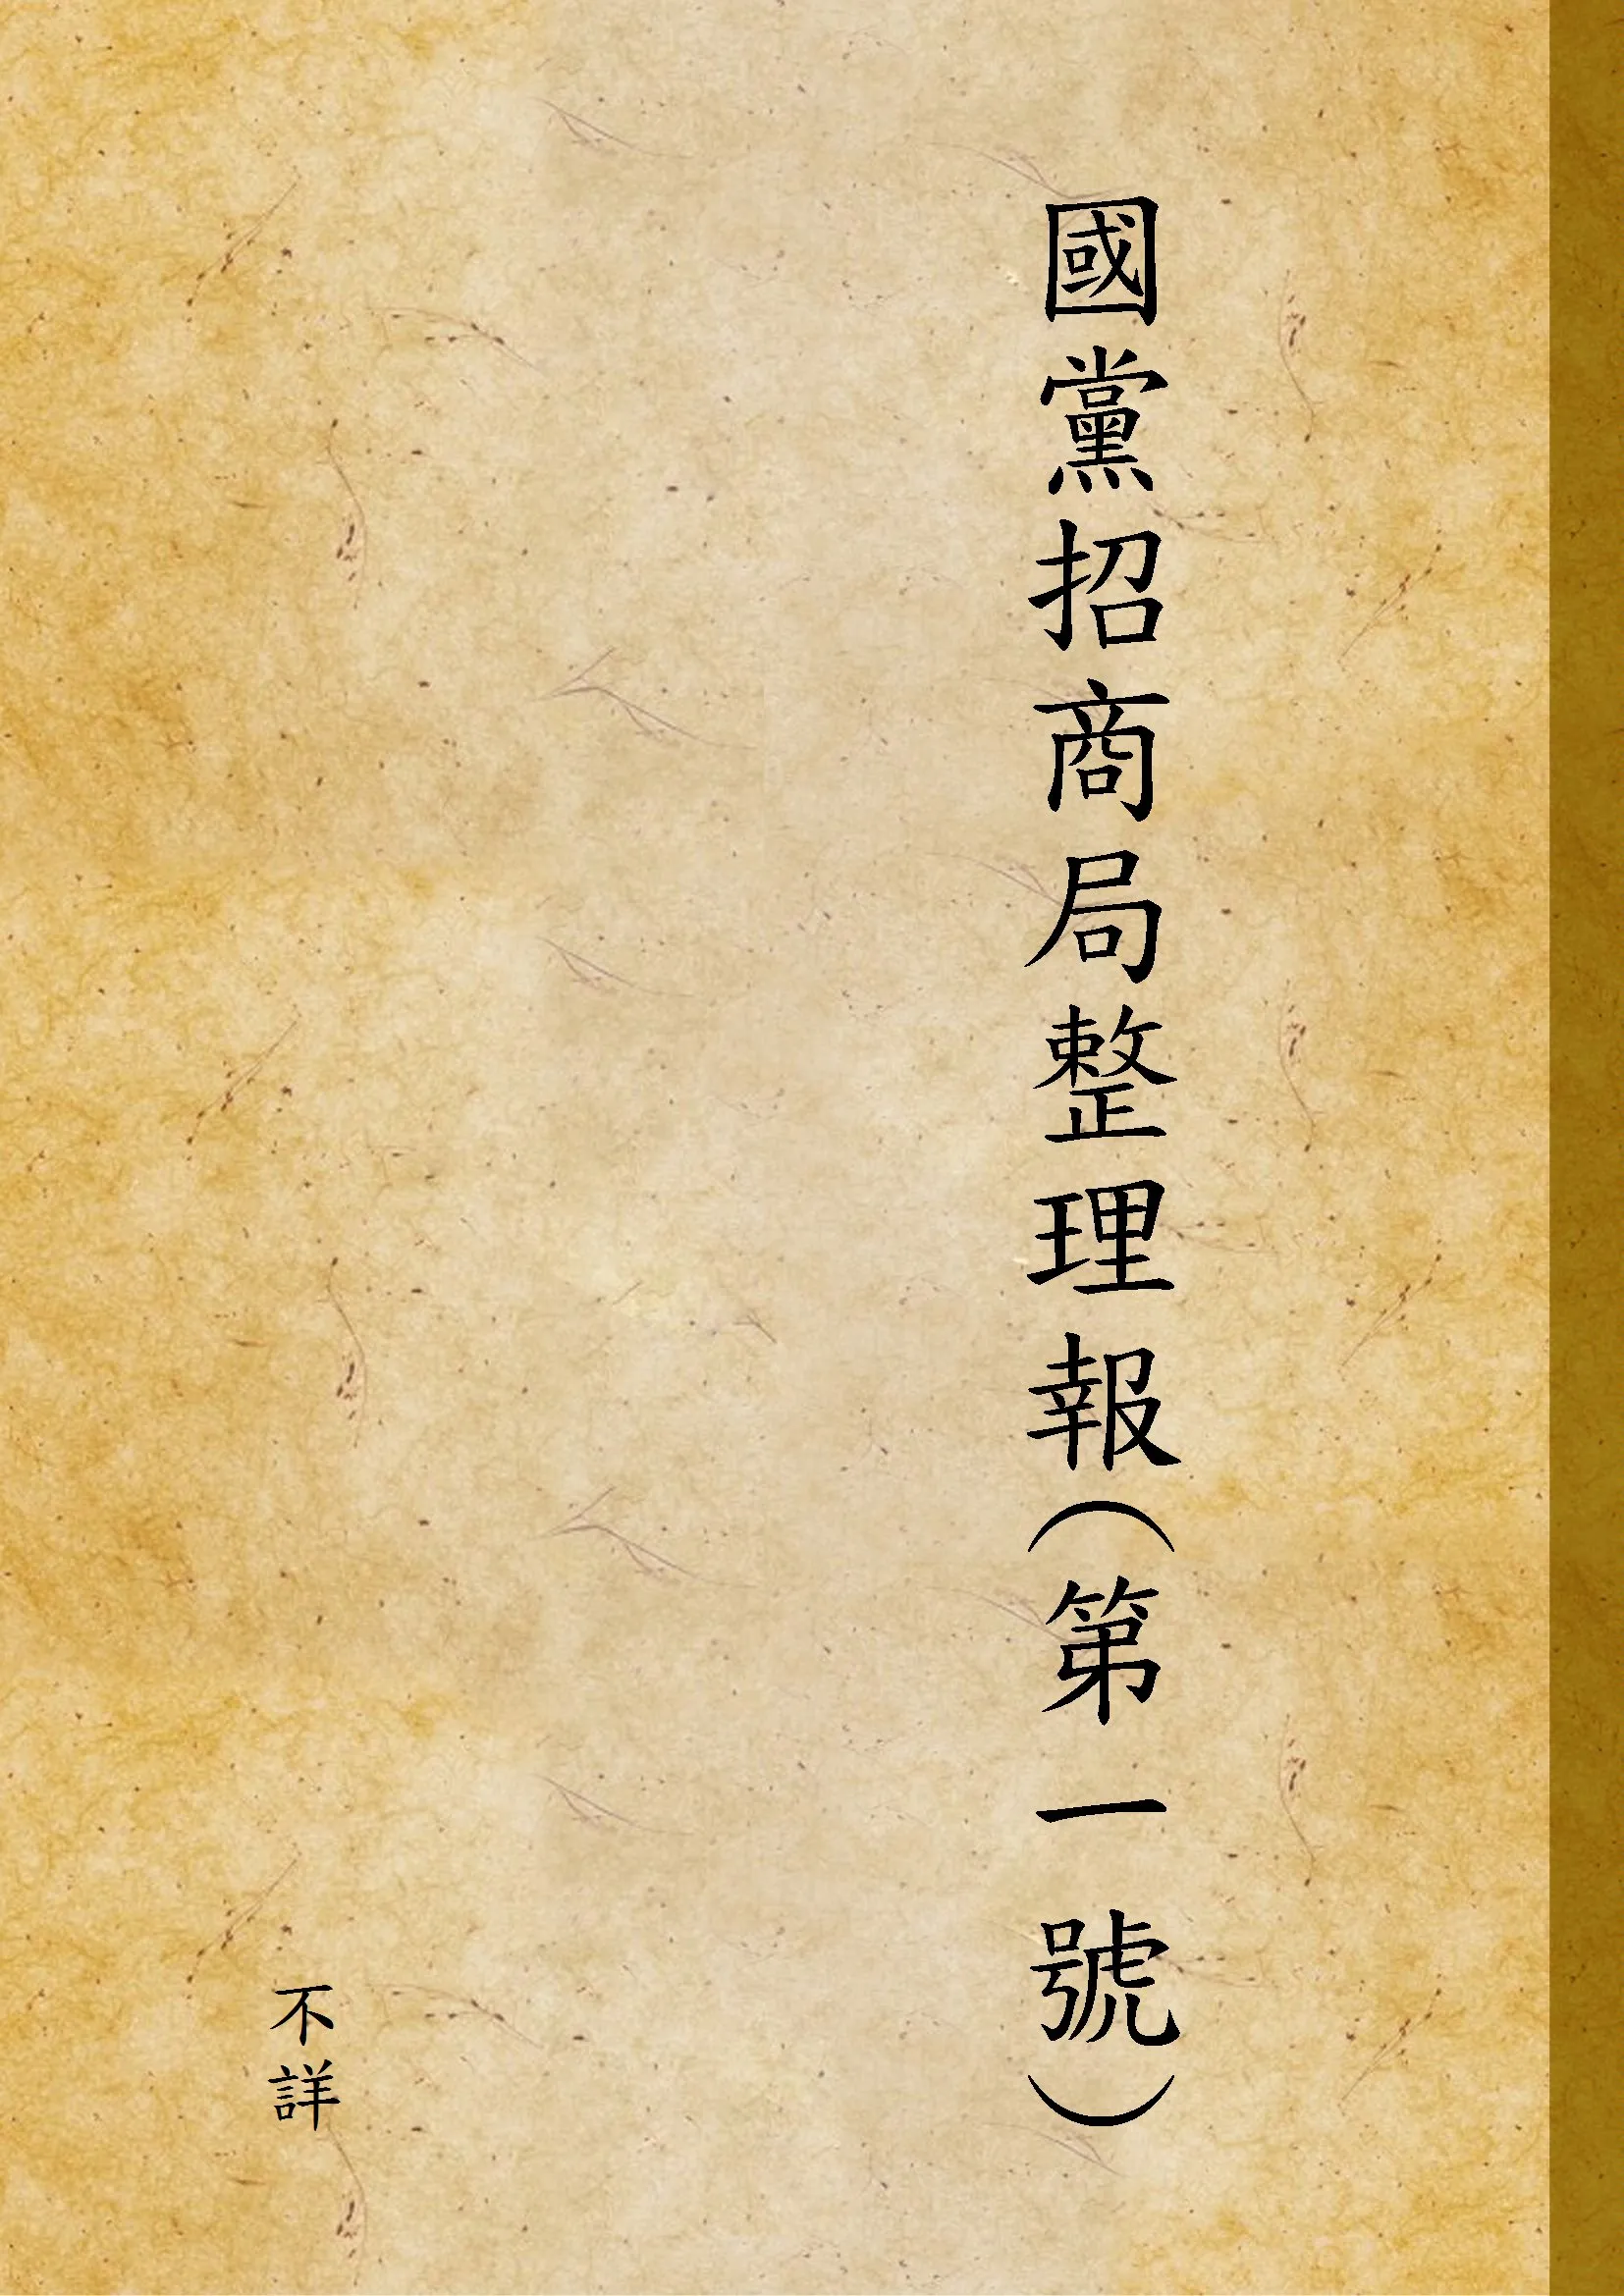 國黨招商局整理報(第一號)
不詳